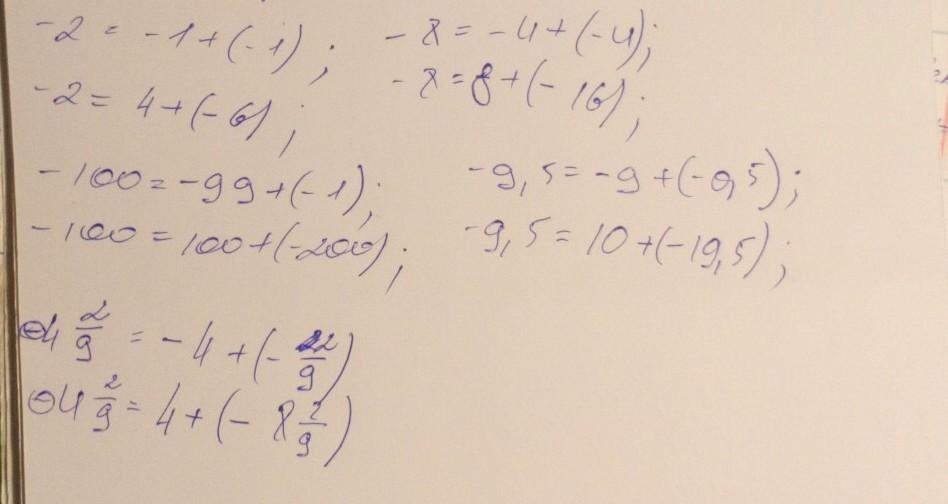 -2 = -1+(-1); -8 = -4+(-4);
-2 = 4+(-6); -8 = 8+(-16);
-100 = -99+(-1); -9,5 = -9+(-0,5);
-100 = 100+(-200); -9,5 = 10+(-19,5);
-4 2/9 = -4+(-2/9)
-4 2/9 = 4+(-8 2/9)